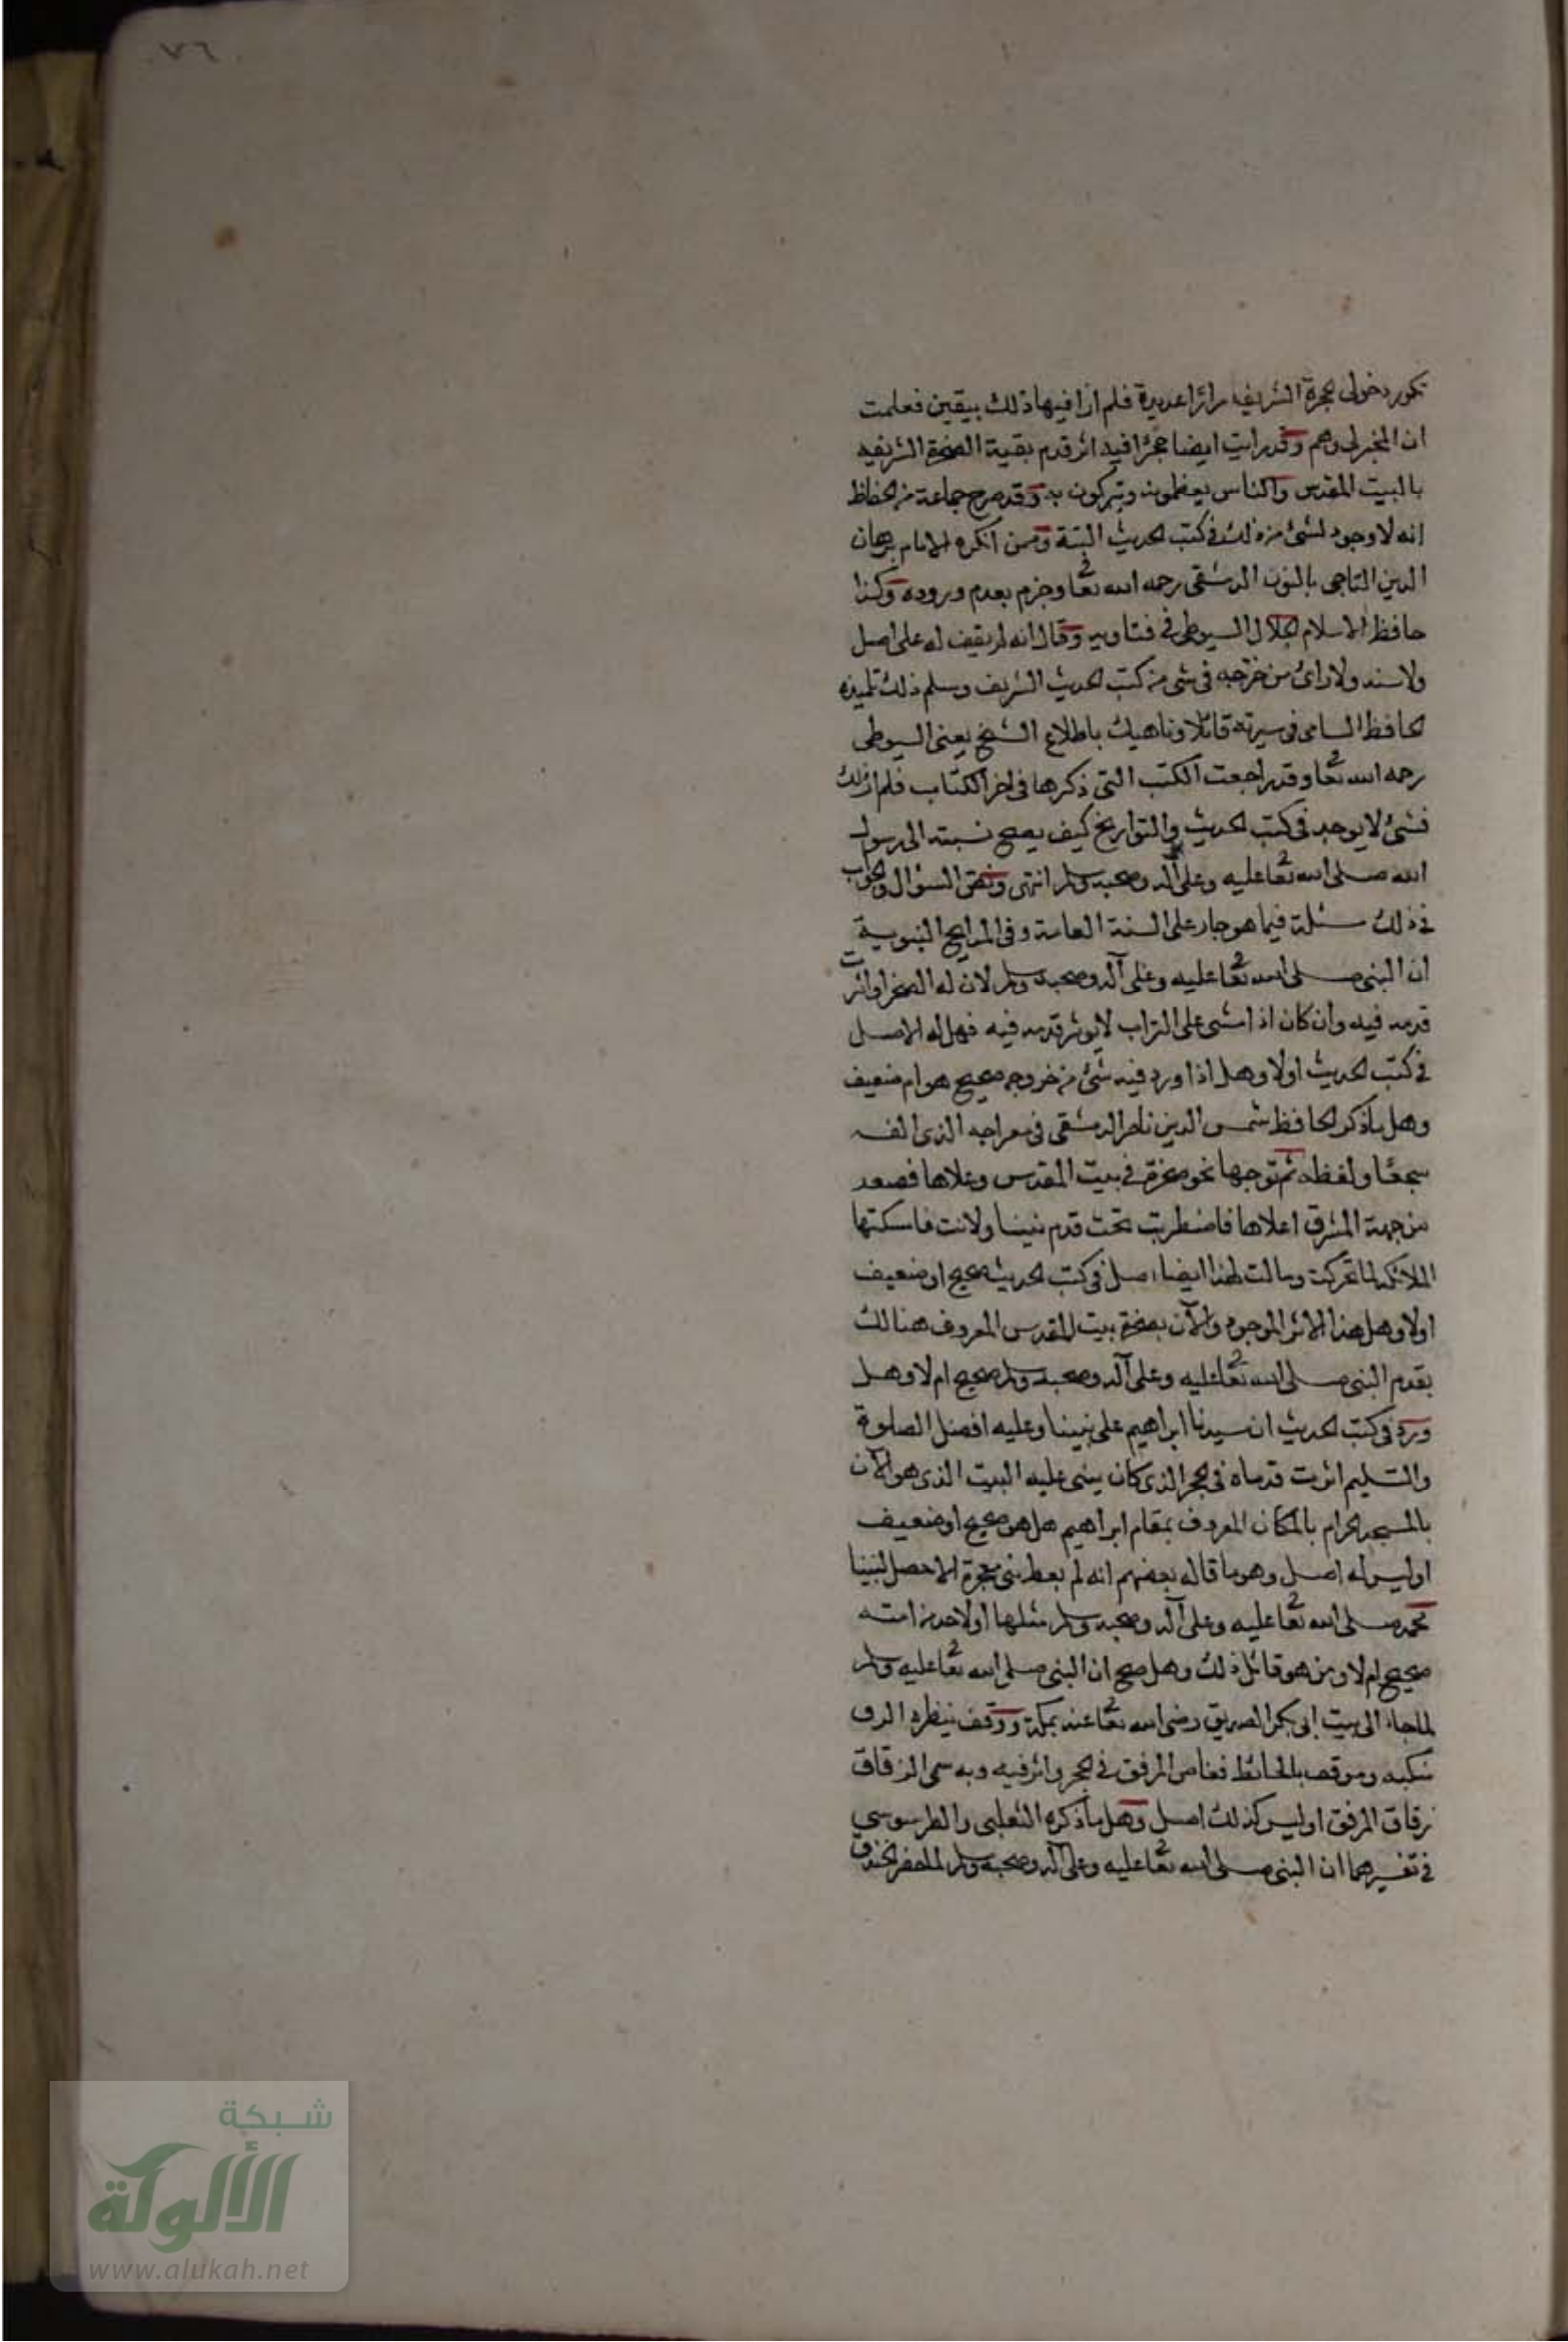 ٧٦
تكرر دخولي لحجرة الشريف مرارا عديدة فلم ار فيها ذلك بيقين فعلمت
ان المخبر لي وهم وقد رايت ايضا حجرا فيه اثر قدم بقية الصخرة الشريفه
بالبيت المقدس والناس يعظمونه ويتبركون به وقد صرح جماعة من الحفاظ
انه لا وجود لشئ من ذلك في كتب الحديث البتة وممن انكره الامام برهان
الدين الناجي بالنون الدمشقي رحمه الله تعا وجزم بعدم وروده وكذا
حافظ الاسلام الجلال السيوطي في فتاويه وقال انه لم يقف له على اصل
ولا سند ولا راى من خرجه في شئ من كتب الحديث الشريف وسلم ذلك تلميذه
الحافظ الشامي في سيرته قائلا وناهيك باطلاع الشيخ يعني السيوطي
رحمه الله تعا وقد راجعت الكتب التي ذكرها في اخر الكتاب فلم ار ذلك
فشئ لا يوجد في كتب الحديث والتواريخ كيف يصح نسبته الى رسول
الله صلى الله تعا عليه وعلى آله وصحبه وسلم انتهى ونص السؤال والجواب
في ذلك مسئلة فيما هو جار على السنة العامة وفي المدايح النبوية
ان النبي صلى الله تعا عليه وعلى آله وصحبه وسلم لان له الصخر واثرت
قدمه فيه وان كان اذا مشى على التراب لا يوثر قدمه فيه فهل له الاصل
في كتب الحديث اولا وهل اذا ورد فيه شئ من خروجه صحيح هو ام ضعيف
وهل ما ذكر الحافظ شمس الدين ناصر الدمشقي في معراجه الذي الفه
سجعا ولفظه ثم توجها نحو صخرة في بيت المقدس وعلاها فصعد
من جهة المشرق اعلاها فاضطربت تحت قدم نبينا ولانت فامسكتها
الملائكة لما تحركت ومالت لهذا ايضا اصل في كتب الحديث صحيح او ضعيف
اولا وهل هذا الاثر الموجود والآن بصخرة بيت المقدس المعروف هنالك
بقدم النبي صلى الله تعا عليه وعلى آله وصحبه وسلم صحيح ام لا وهل
ورد في كتب الحديث ان سيدنا ابراهيم على نبينا وعليه افضل الصلوة
والتسليم اثرت قدماه في الحجر الذي كان يبنى عليه البيت الذي هو الآن
بالمسجد الحرام بالمكان المعروف بمقام ابراهيم هل هو صحيح او ضعيف
او ليس له اصل وهو ما قاله بعضهم انه لم يعط نبى معجزة الا حصل لنبينا
محمد صلى الله تعا عليه وعلى آله وصحبه وسلم مثلها اولاحد من امته
صحيح ام لا ومن هو قائل ذلك وهل صح ان النبي صلى الله تعا عليه وسلم
لما جاء الى بيت ابى بكر الصديق رضى الله تعا عنه بمكة ووقف ينتظره الزق
منكبه ومرفقه بالحائط فغاص المرفق في الحجر واثر فيه وبه سمى الزقاق
زقاق المرفق او ليس كذلك اصل وهل ما ذكره الثعلبى والطرسوسي
في تفسيرهما ان النبي صلى الله تعا عليه وعلى آله وصحبه وسلم لما حفر الخندق
شبكة
الألوكة
www.alukah.net